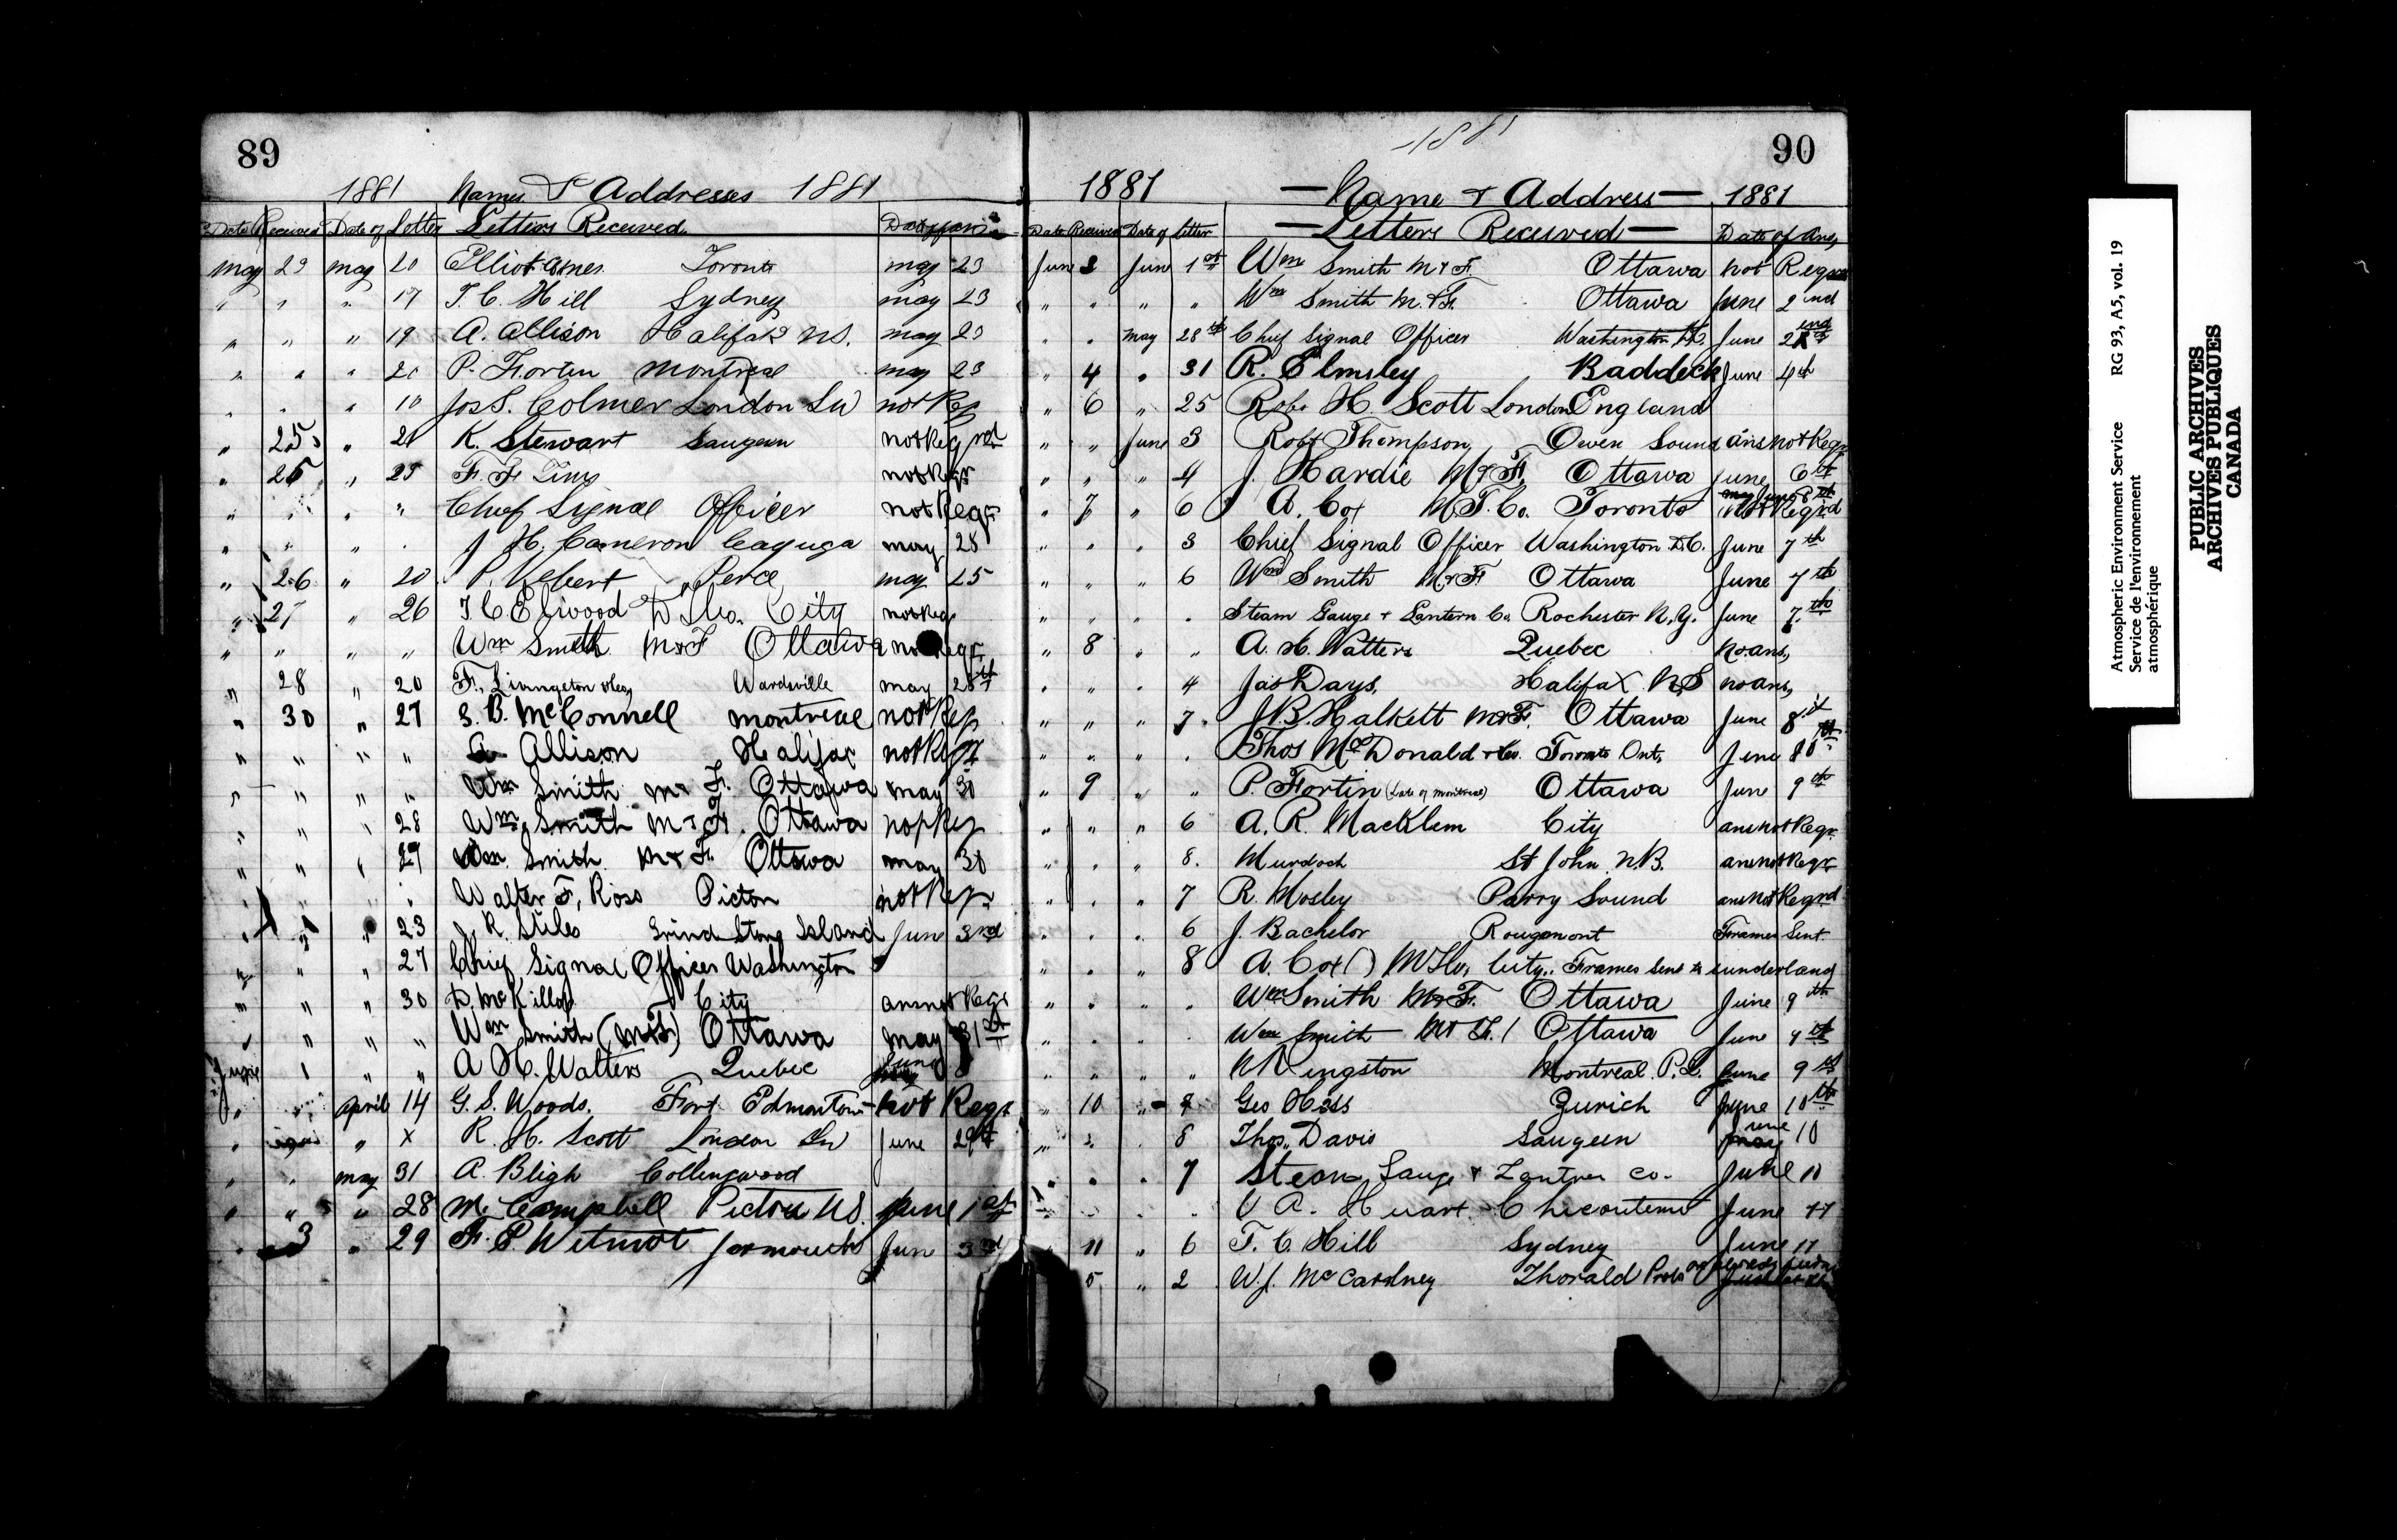 89
1881 Names & Addresses 1881
Date Received Date of Letter Letters Received Date of ans
May 23 May 20 Elliot Toronto May 23
" " " 17 T. C. Hill Sydney May 23
" " " 19 A. Allison Halifax NS. May 23
" " " 20 P. Fortin Montreal May 23
" " " 10 Jos S. Colmer London not Reg
" 25 " 21 K. Stewart Saugeen not Reqrd
" 25 " 25 F. F. not Reqr
" " " " Chief Signal Officer not Reqr
" " " " J H. Cameron Cayuga May 25
" 26 " 20 P. Vebert Perce May 25
" 27 " 26 T C Elwood City not Req
" " " " Wm Smith M&F Ottawa not Reqr
" 28 " 20 F. Livingston Wardsville May 28th
" 30 " 27 S. B. McConnell Montreal not Req
" " " " A Allison Halifax not Reqr
" " " " Wm Smith M& F. Ottawa May 30
" " " 28 Wm Smith M & F. Ottawa not Req
" " " 29 Wm Smith M & F. Ottawa May 30
" " " " Walter F. Ross Picton not Reqr
" " " 23 J. R. Stiles Grind Stone Island June 3rd
" " " 27 Chief Signal Officer Washington
" " " 30 D. McKillop City ans not Reqr
" " " " Wm Smith (M&F) Ottawa May 31st
June 1 " " A H. Walters Quebec June
" " April 14 G. S. Woods. Fort Edmonton not Reqr
" " " X R. H. Scott London June 29th
" " May 31 A. Bligh Collingwood
" " " 28 M. Campbell Pictou NS. June 1st
" 3 " 29 F. P. Wetmot Yarmouth June 3rd
1881
90
1881 — Name & Address — 1881
Date Received Date of Letter — Letters Received — Date of Ans,
June 2 June 1st Wm Smith M & F. Ottawa not Reqr
" " " " Wm Smith M. & F. Ottawa June 2nd
" " May 28th Chief Signal Officer Washington D.C. June 2nd
" 4 " 31 R. Elmsley Baddeck June 4th
" 6 " 25 Robt H. Scott London England
" " June 3 Robt Thompson, Owen Sound ans not Reqr
" " " 4 J. Hardie M & F. Ottawa June 6th
" 7 " 6 A. Cox M. T. Co. Toronto June 8th not Reqrd
" " " 3 Chief Signal Officer Washington D.C. June 7th
" " " 6 Wm Smith M&F Ottawa June 7th
" " " " Steam Gauge & Lantern Co. Rochester N.Y. June 7th
" 8 " " A. H. Walters Quebec No ans,
" " " 4 Jas Days, Halifax NS no ans,
" " " 7 J. B. Halkett M&F. Ottawa June 8th
" " " " Thos McDonald & Co. Toronto Ont, June 8th
" 9 " " P. Fortin (late of Montreal) Ottawa June 9th
" " " 6 A. R. Macklem City ans not Reqr
" " " 8. Murdoch St John N.B. ans not Reqr
" " " 7 R. Mosley Parry Sound ans not Reqrd
" " " 6 J. Bachelor Rougemont Frames Sent.
" " " 8 A. Cox ( ) City. Frames Sent to Sunderland
" " " " Wm Smith M&F. Ottawa June 9th
" " " " Wm Smith M & F. Ottawa June 9th
" " " " Kingston Montreal P.Q. June 9th
" 10 " 9 Geo Hess Zurich June 10th
" " " 8 Thos. Davis Saugeen June 10
" " " 7 Steam Gauge & Lantern Co. June 10
" " " " V A. Huart Chicoutimi June 11
" 11 " 6 T. C. Hill Sydney June 11
5 " 2 W. J. McCardney Thorald Probs
Atmospheric Environment Service RG 93, A5, vol. 19
Service de l'environnement
atmosphérique
PUBLIC ARCHIVES
ARCHIVES PUBLIQUES
CANADA